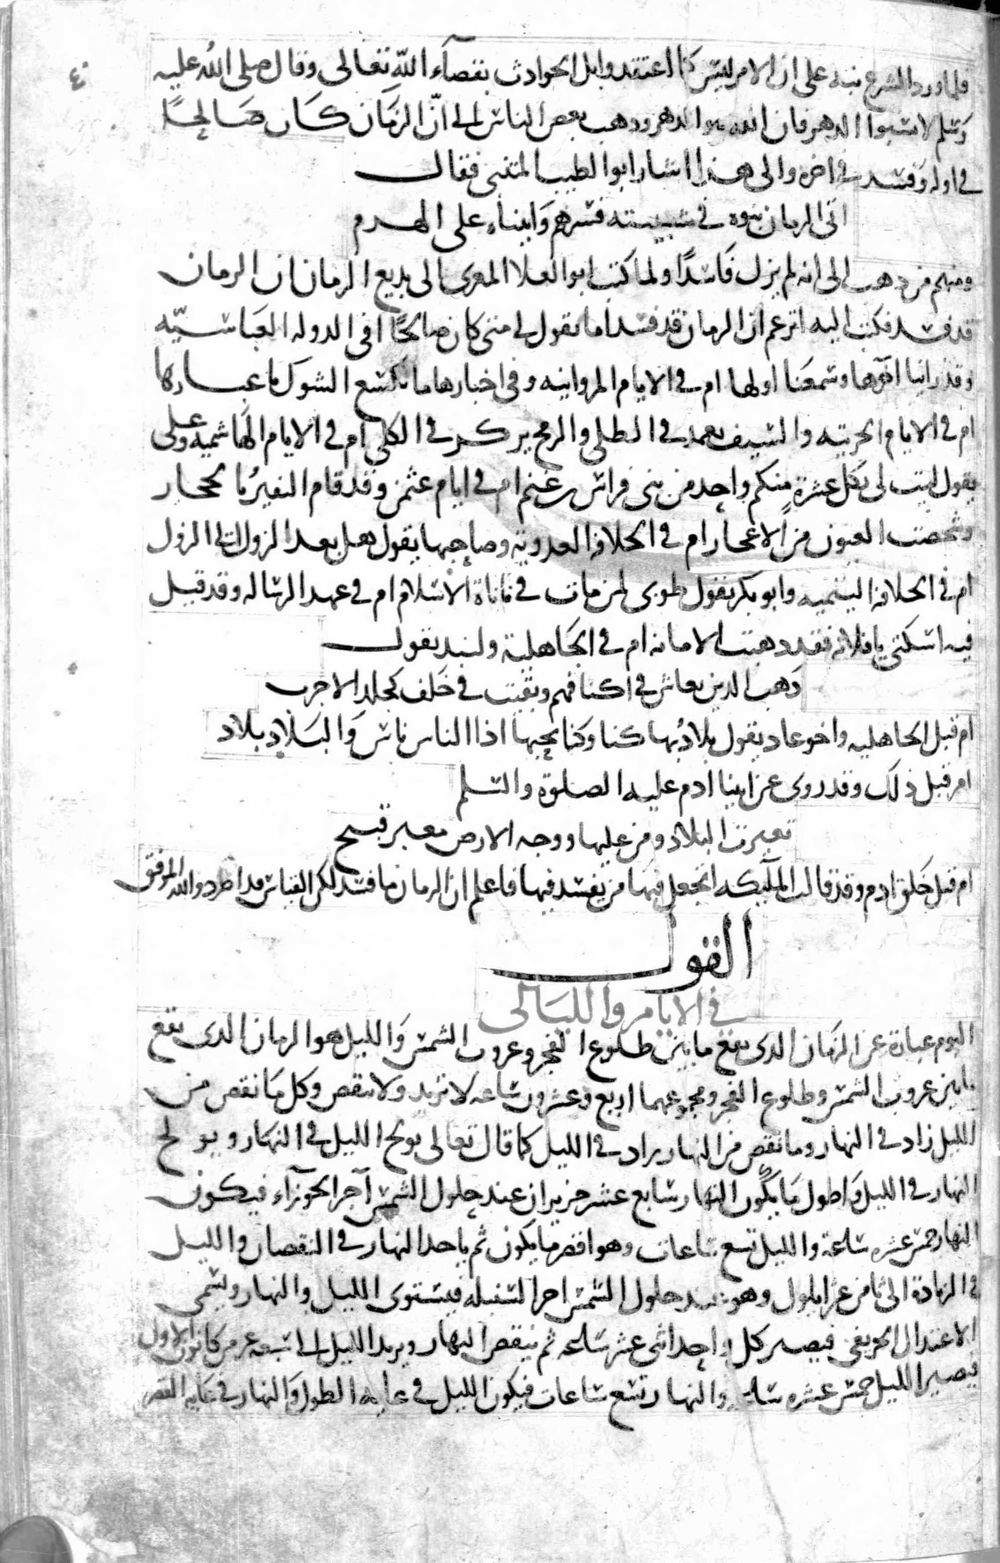 ٤٠
فلما ورد الشرع نبه على ان الامر ليس كما اعتقدوا بل الحوادث بقضآء الله تعالى وقال صلى الله عليه
وسلم لا تسبوا الدهر فان الله هو الدهر وذهب بعض الناس الى انّ الزمان كان صالحًا
في اوله وفسد في اخره والى هذا اشار ابو الطيب المتنبى فقال
اتى الزمان بنوه في شبيبته فسرهم وَاتيناه على الهرم
ومنهم من ذهب الى انه لم يزل فاسدًا ولما كتب ابو العلا المعرى الى بديع الزمان ان الزمان
قد فسد فكتب اليه اتزعم ان الزمان قد فسد اما تقول لي متى كان صالحًا افى الدوله العباسيّه
وقد راينا اخرها وسمعنا اولها ام في الايام المروانيه وفى اخبارها ما تكسع الشول باغبارها
ام في الايام الحربيه والسيف يغمد في الطلى والرمح يركز في الكلى ام في الايام الهاشميه وعلى
يقول ليت لى بكل عشرة منكم واحد من بنى فراس بن غنم ام في ايام عثمن وقد قام النفير بالحجاز
وشخصت العيون من الاعجاز ام في الخلافه العدويه وصاحبها يقول هل بعد البزول الى النزول
ام في الخلافه التيميه وابو بكر يقول طوبى لمن مات في نأنأة الاسلام ام في عهد الرساله وقد قيل
فيه اسكتى يا فلانه فقد ذهبت الامانه ام في الجَاهلية ولبيد يقول
ذهب الذين يعاش في اكنافهم وبقيت في خلف كجلد الاجرب
ام قبل الجاهليه واخو عاد يقول بلادٌ بها كنا وكنا نحبها اذا الناس ناس وَالبَلاد بلاد
ام قبل ذلك وقد روى عن ابينا ادم عليه الصلوة والسلم
تغيرت البلاد ومن عليها ووجه الارض مغبر قبيح
ام قبل خلق ادم وقد قالت الملآئكه اتجعل فيها من يفسد فيها فاعلم ان الزمان ما فسد لكن القياس قد اطرد والله الموفق
القول
في الايام والليالى
اليوم عبارة عن الزمان الذى يقع ما بين طلوع الفجر وغروب الشمس وَالليل هو الزمان الذى يقع
ما بين غروب الشمس وطلوع الفجر ومجموعهما اربع وعشرون ساعه لا تزيد ولا تنقص وكل ما نقص من
الليل زاد في النهار وما نقص من النهار يزاد في الليل كما قال تعالى يولج الليل في النهار ويولج
النهار في الليل وَاطول ما يكون النهار سابع عشر حزيران عند حلول الشمس آخر الجوزآء فيكون
النهار خمس عشره ساعة والليل تسع ساعات وهو اقصر ما يكون ثم ياخذ النهار في النقصان والليل
في الزيادة الى ثامن عشر ايلول وهو عند حلول الشمس اخر السنبله فيستوى الليل والنهار ويسمى
الاعتدال الخريفى فيصير كل واحد اثنى عشر ساعه ثم ينقص النهار ويزيد الليل الى سبعه عشر من كانون الاول
فيصير الليل خمس عشره ساعه والنهار تسع ساعات فيكون الليل في غايه الطول وَالنهار في غايه القصر